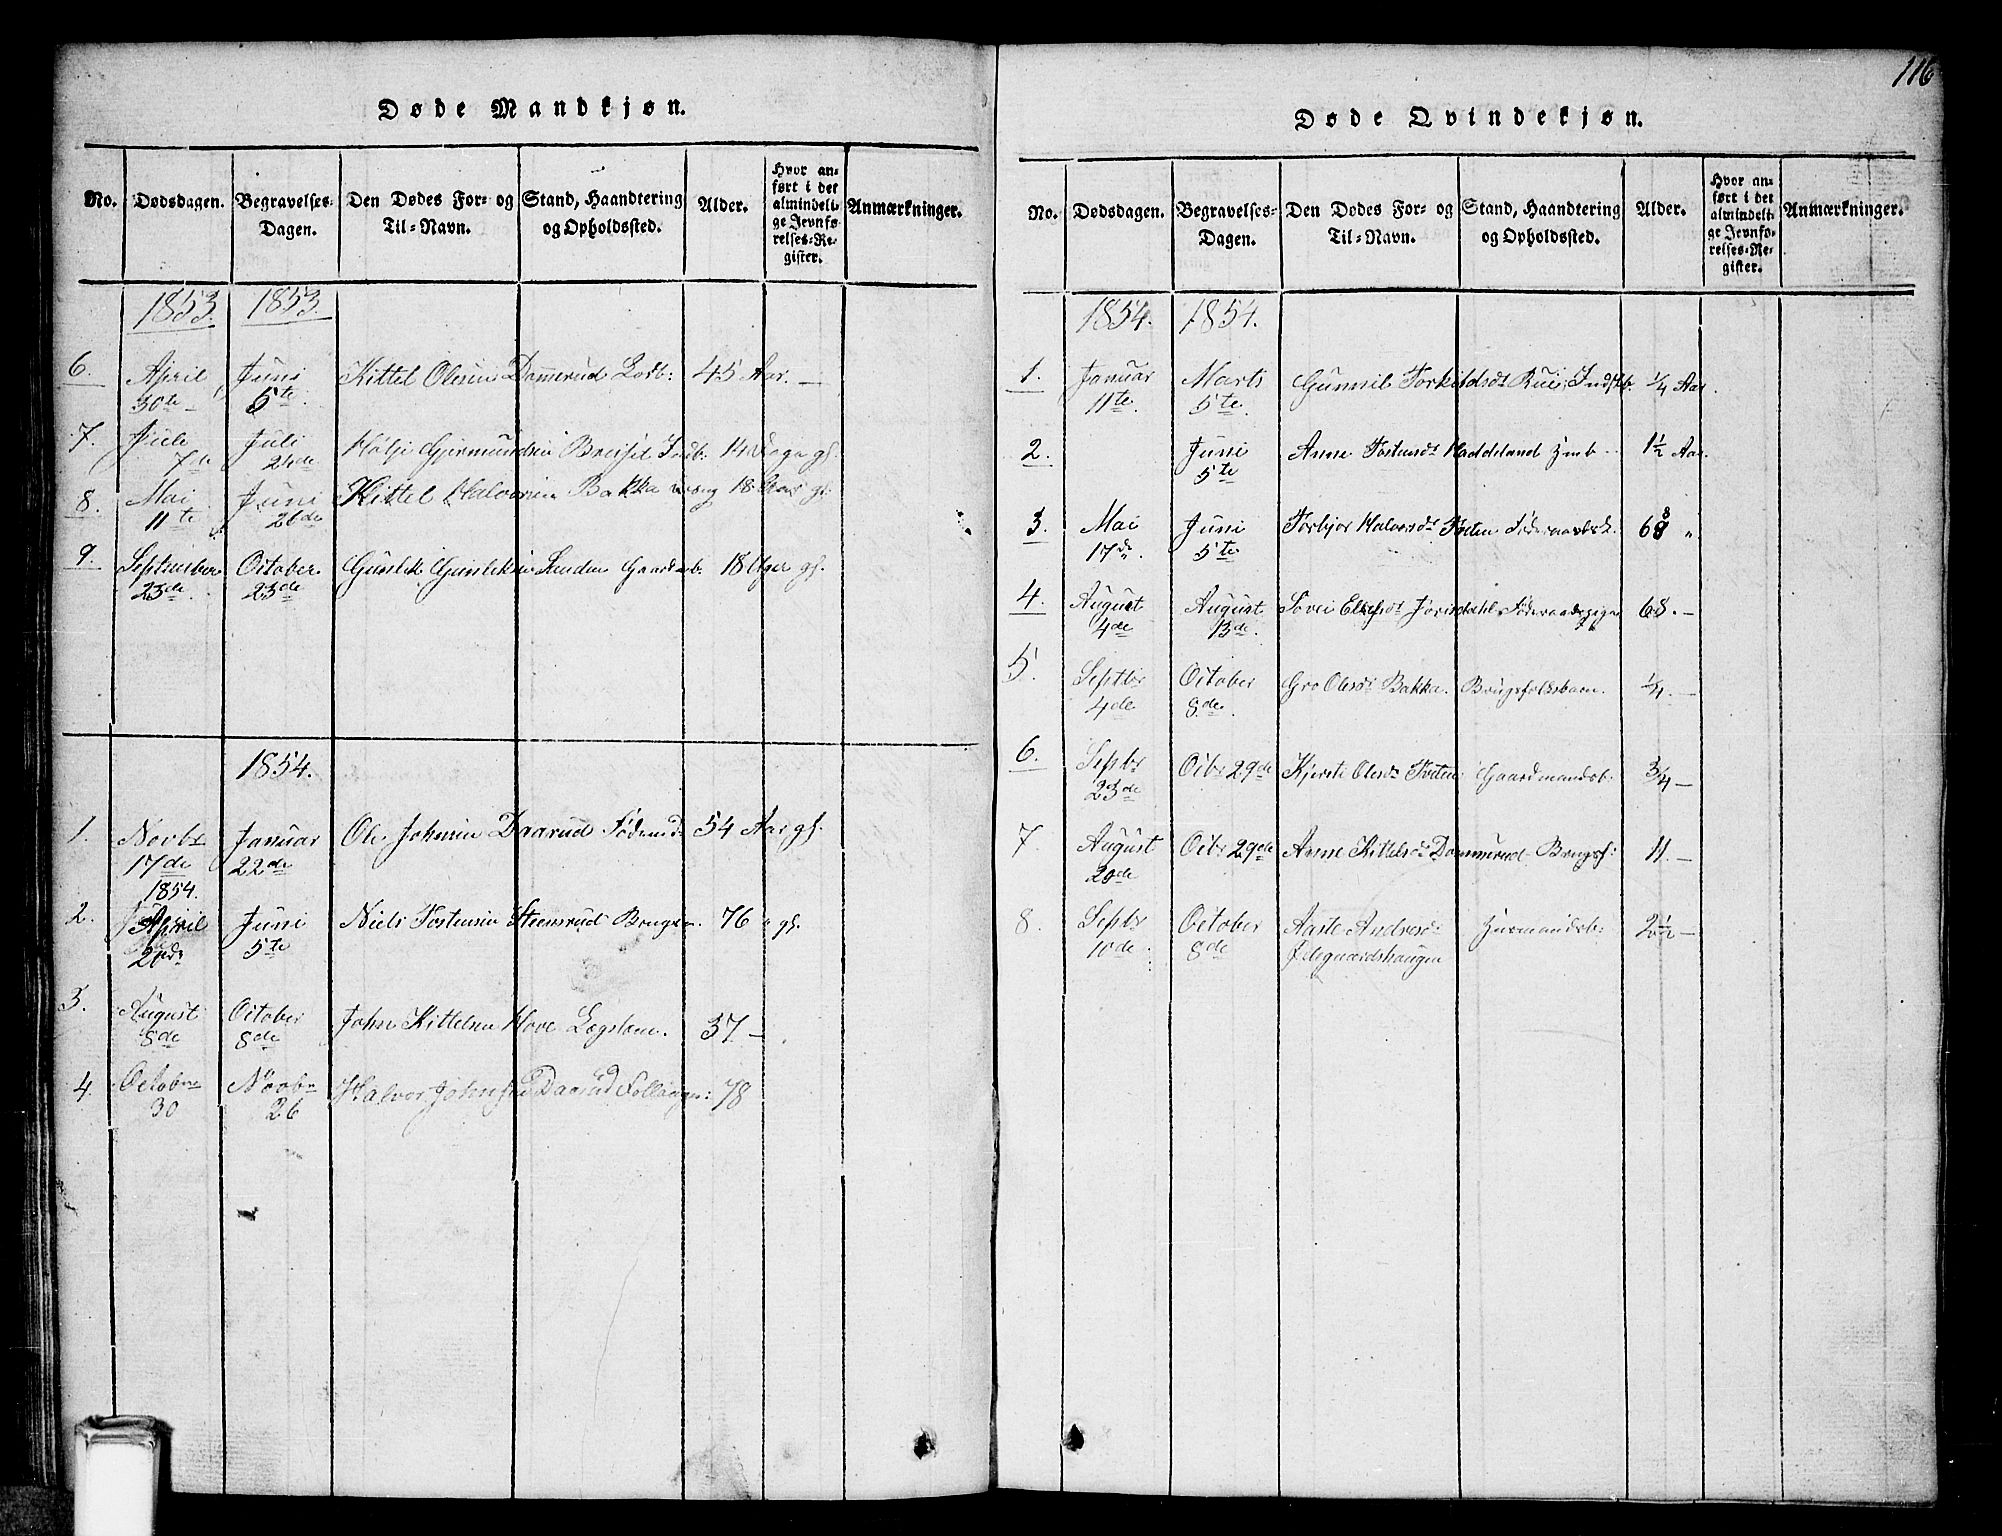 116
Døde Mandkjøn.
No. Dødsdagen. Begravelses-Dagen. Den Dødes For- og Til-Navn. Stand, Haandtering og Opholdssted. Alder. Hvor anført i det almindelige Jevnførelses-Register. Anmærkninger.
1853. 1853.
6. April 30te Juni 5te Kittel Olesen Dammerud 45 Aar. —
7. Juli 7de Juli 24de Gjermundsen 14 Dage gl.
8. Mai 11te Juni 26de Kittel Halvorsen Bakka 18 Aar gl.
9. September 23de October 23de Gunlik Gunliksen Gaardmb. 18 Uger gl.
1854.
1. Novbr 17de Januar 22de Ole Johnsen Daarud Födemd. 54 Aar gl.
1854.
2. April 20de Juni 5te Niels Tostensen Steensrud Brugsm. 76 " gl.
3. August 8de October 8de John Kittelsen Hove Lægslem. 37 —
4. Octobr 30 Novbr 26 Halvor Johnsen Daarud 78
Døde Qvindekjøn.
No. Dødsdagen. Begravelses-Dagen. Den Dødes For- og Til-Navn. Stand, Haandtering og Opholdssted. Alder. Hvor anført i det almindelige Jevnførelses-Register. Anmærkninger.
1854. 1854.
1. Januar 11te Marts 5te Gunnil Torkildsdr Rue, Indstb. 1/4 Aar.
2. Juni 5te Anne Tostensdr Haddeland 1 1/2 Aar.
3. Mai 17de Juni 5te Torbjør Halvorsdr Tveten 68 "
4. August 4de August 13de Elefsdr Jorisdahl Föderaadspige 68. —
5. Septbr 4de October 8de Gro Olesdr Bakka. Brugsfolksbarn. 1/4. —
6. Septbr 23de Octbr 29de Kjerste Olesdr Tveten Gaardmandsb. 3/4 —
7. August 20de Octbr 29de Anne Kittelsdr Dammerud Brugsf: 11. —
8. Septbr 10de October 8de Aaste Andresdr Ødegaardshaugen Huusmandsb: 2 1/2 —